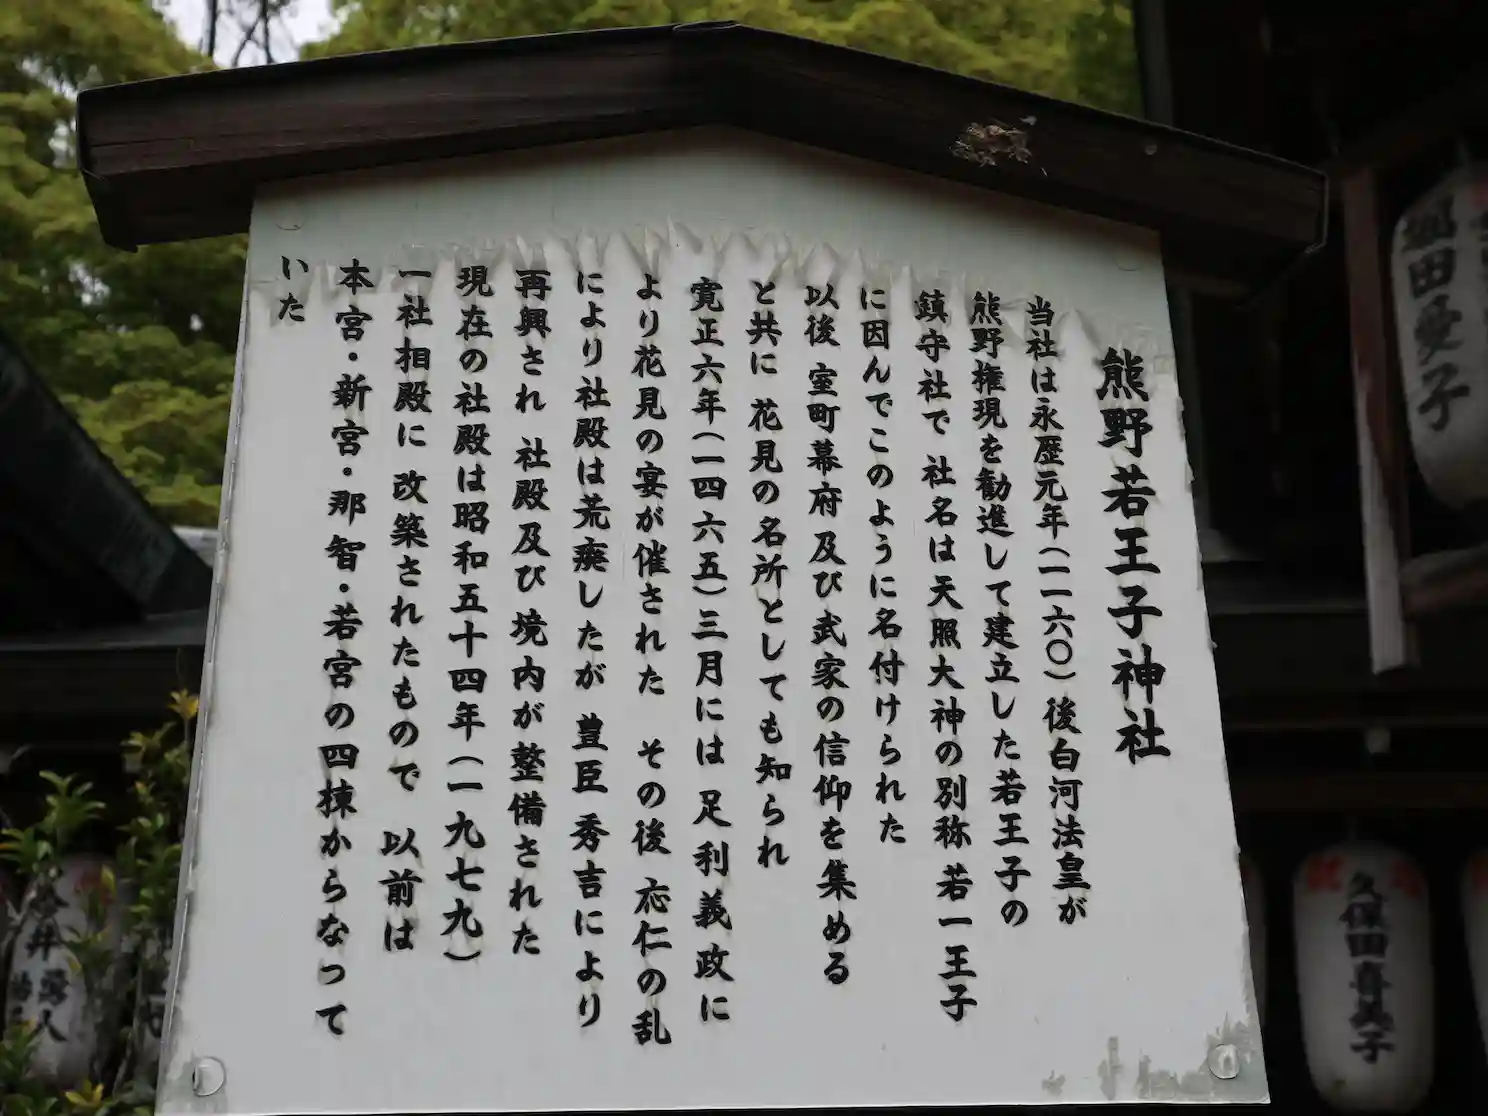 熊野若王子神社
当社は永歴元年(一一六〇)後白河法皇が
熊野権現を勧進して建立した若王子の
鎮守社で 社名は天照大神の別称 若一王子
に因んでこのように名付けられた
以後 室町幕府及び武家の信仰を集める
と共に 花見の名所としても知られ
寛正六年(一四六五)三月には 足利義政に
より花見の宴が催された その後 応仁の乱
により社殿は荒廃したが 豊臣秀吉により
再興され 社殿及び境内が整備された
現在の社殿は昭和五十四年(一九七九)
一社相殿に 改築されたもので 以前は
本宮・新宮・那智・若宮の四棟からなって
いた
田愛子
久保田喜美子